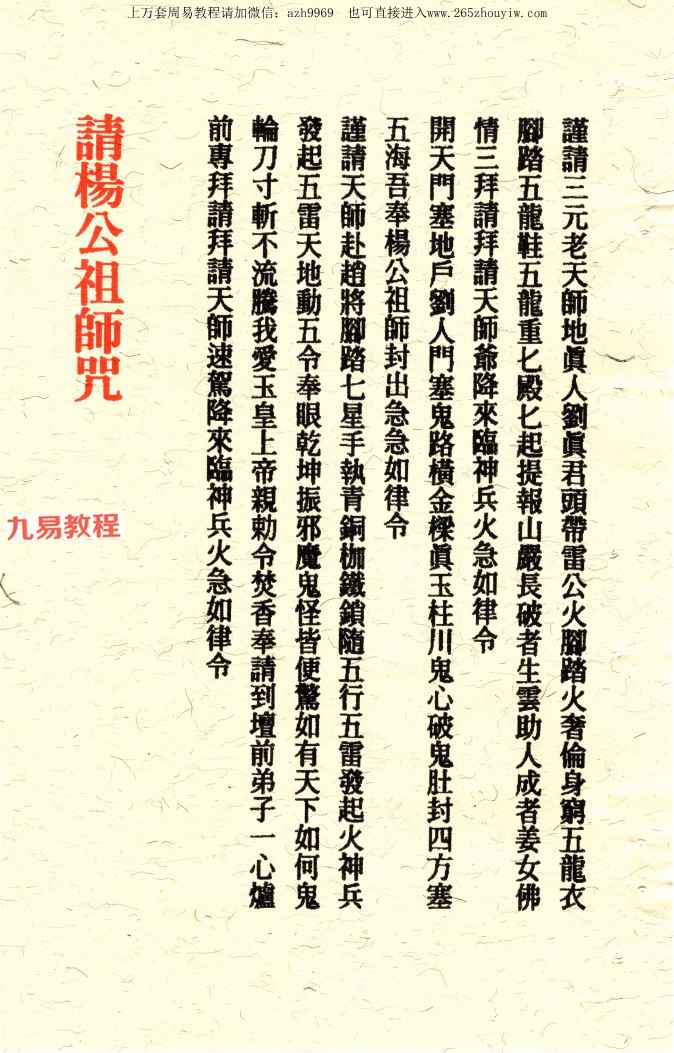 上万套周易教程请加微信：azh9969 也可直接进入www.265zhouyiw.com
謹請三元老天師地眞人劉眞君頭帶雷公火腳踏火奢倫身窮五龍衣
腳踏五龍鞋五龍重匕殿匕起提報山嚴長破者生雲助人成者姜女佛
情三拜請拜請天師爺降來臨神兵火急如律令
開天門塞地戶劉人門塞鬼路橫金樑眞玉柱川鬼心破鬼肚封四方塞
五海吾奉楊公祖師封出急急如律令
謹請天師赴趙將腳踏七星手執青銅枷鐵鎖隨五行五雷發起火神兵
發起五雷天地動五令奉眼乾坤振邪魔鬼怪皆便驚如有天下如何鬼
輪刀寸斬不流騰我愛玉皇上帝親勅令焚香奉請到壇前弟子一心爐
前專拜請拜請天師速駕降來臨神兵火急如律令
請楊公祖師咒
九易教程